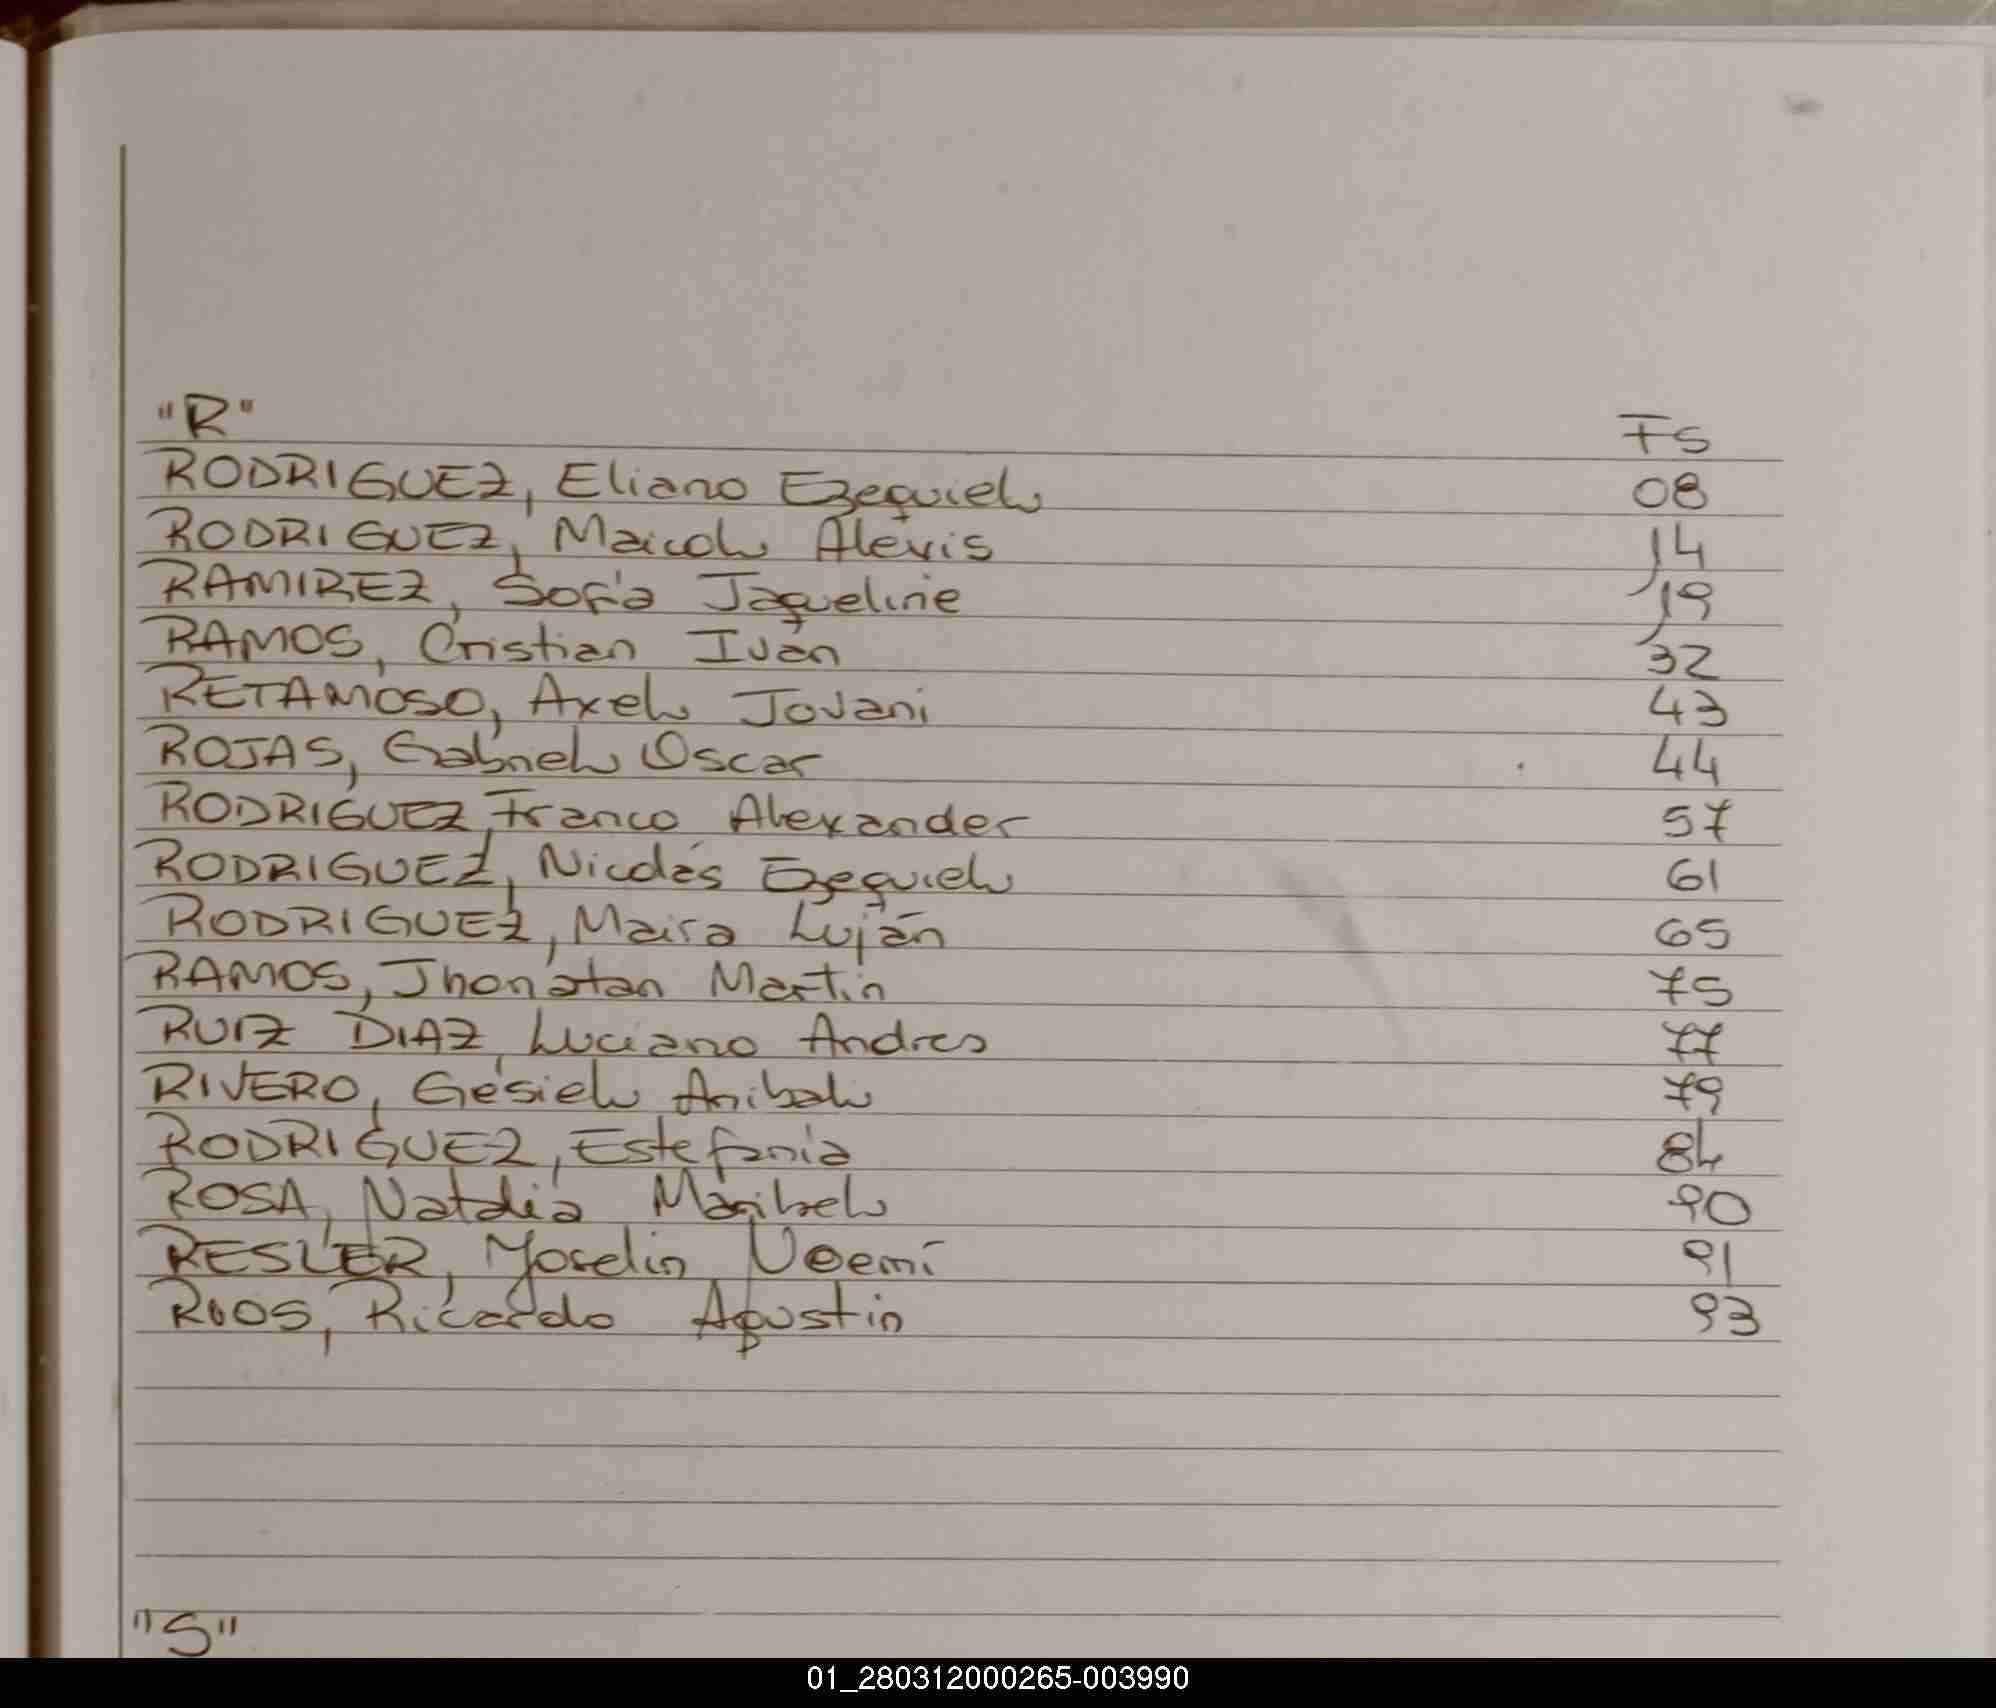 "R" FS
RODRIGUEZ, Eliano Ezequiel 08
RODRIGUEZ, Maicol Alexis 14
RAMIREZ, Sofía Jaqueline 19
RAMOS, Cristian Iván 32
RETAMOSO, Axel Jovani 43
ROJAS, Gabriel Oscar 44
RODRIGUEZ, Franco Alexander 57
RODRIGUEZ, Nicolás Ezequiel 61
RODRIGUEZ, Maira Luján 65
RAMOS, Jhonatan Martin 75
RUIZ DIAZ, Luciano Andres 77
RIVERO, Gesiel Anibal 79
RODRIGUEZ, Estefania 84
ROSA, Natalia Maribel 90
RESLER, Yoselin Noemí 91
RIOS, Ricardo Agustin 93
"S"
01_280312000265-003990